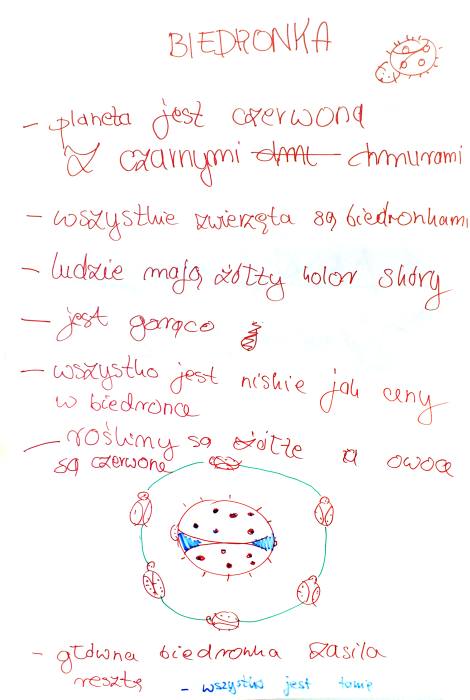 BIEDRONKA
- planeta jest czerwona
z czarnymi chmurami
- wszystkie zwierzęta są biedronkami
- ludzie mają żółty kolor skóry
- jest gorąco
- wszystko jest niskie jak ceny
w biedronce
- rośliny są żółte a owoce
są czerwone
- główna biedronka zasila
resztę
- wszystko jest tanie